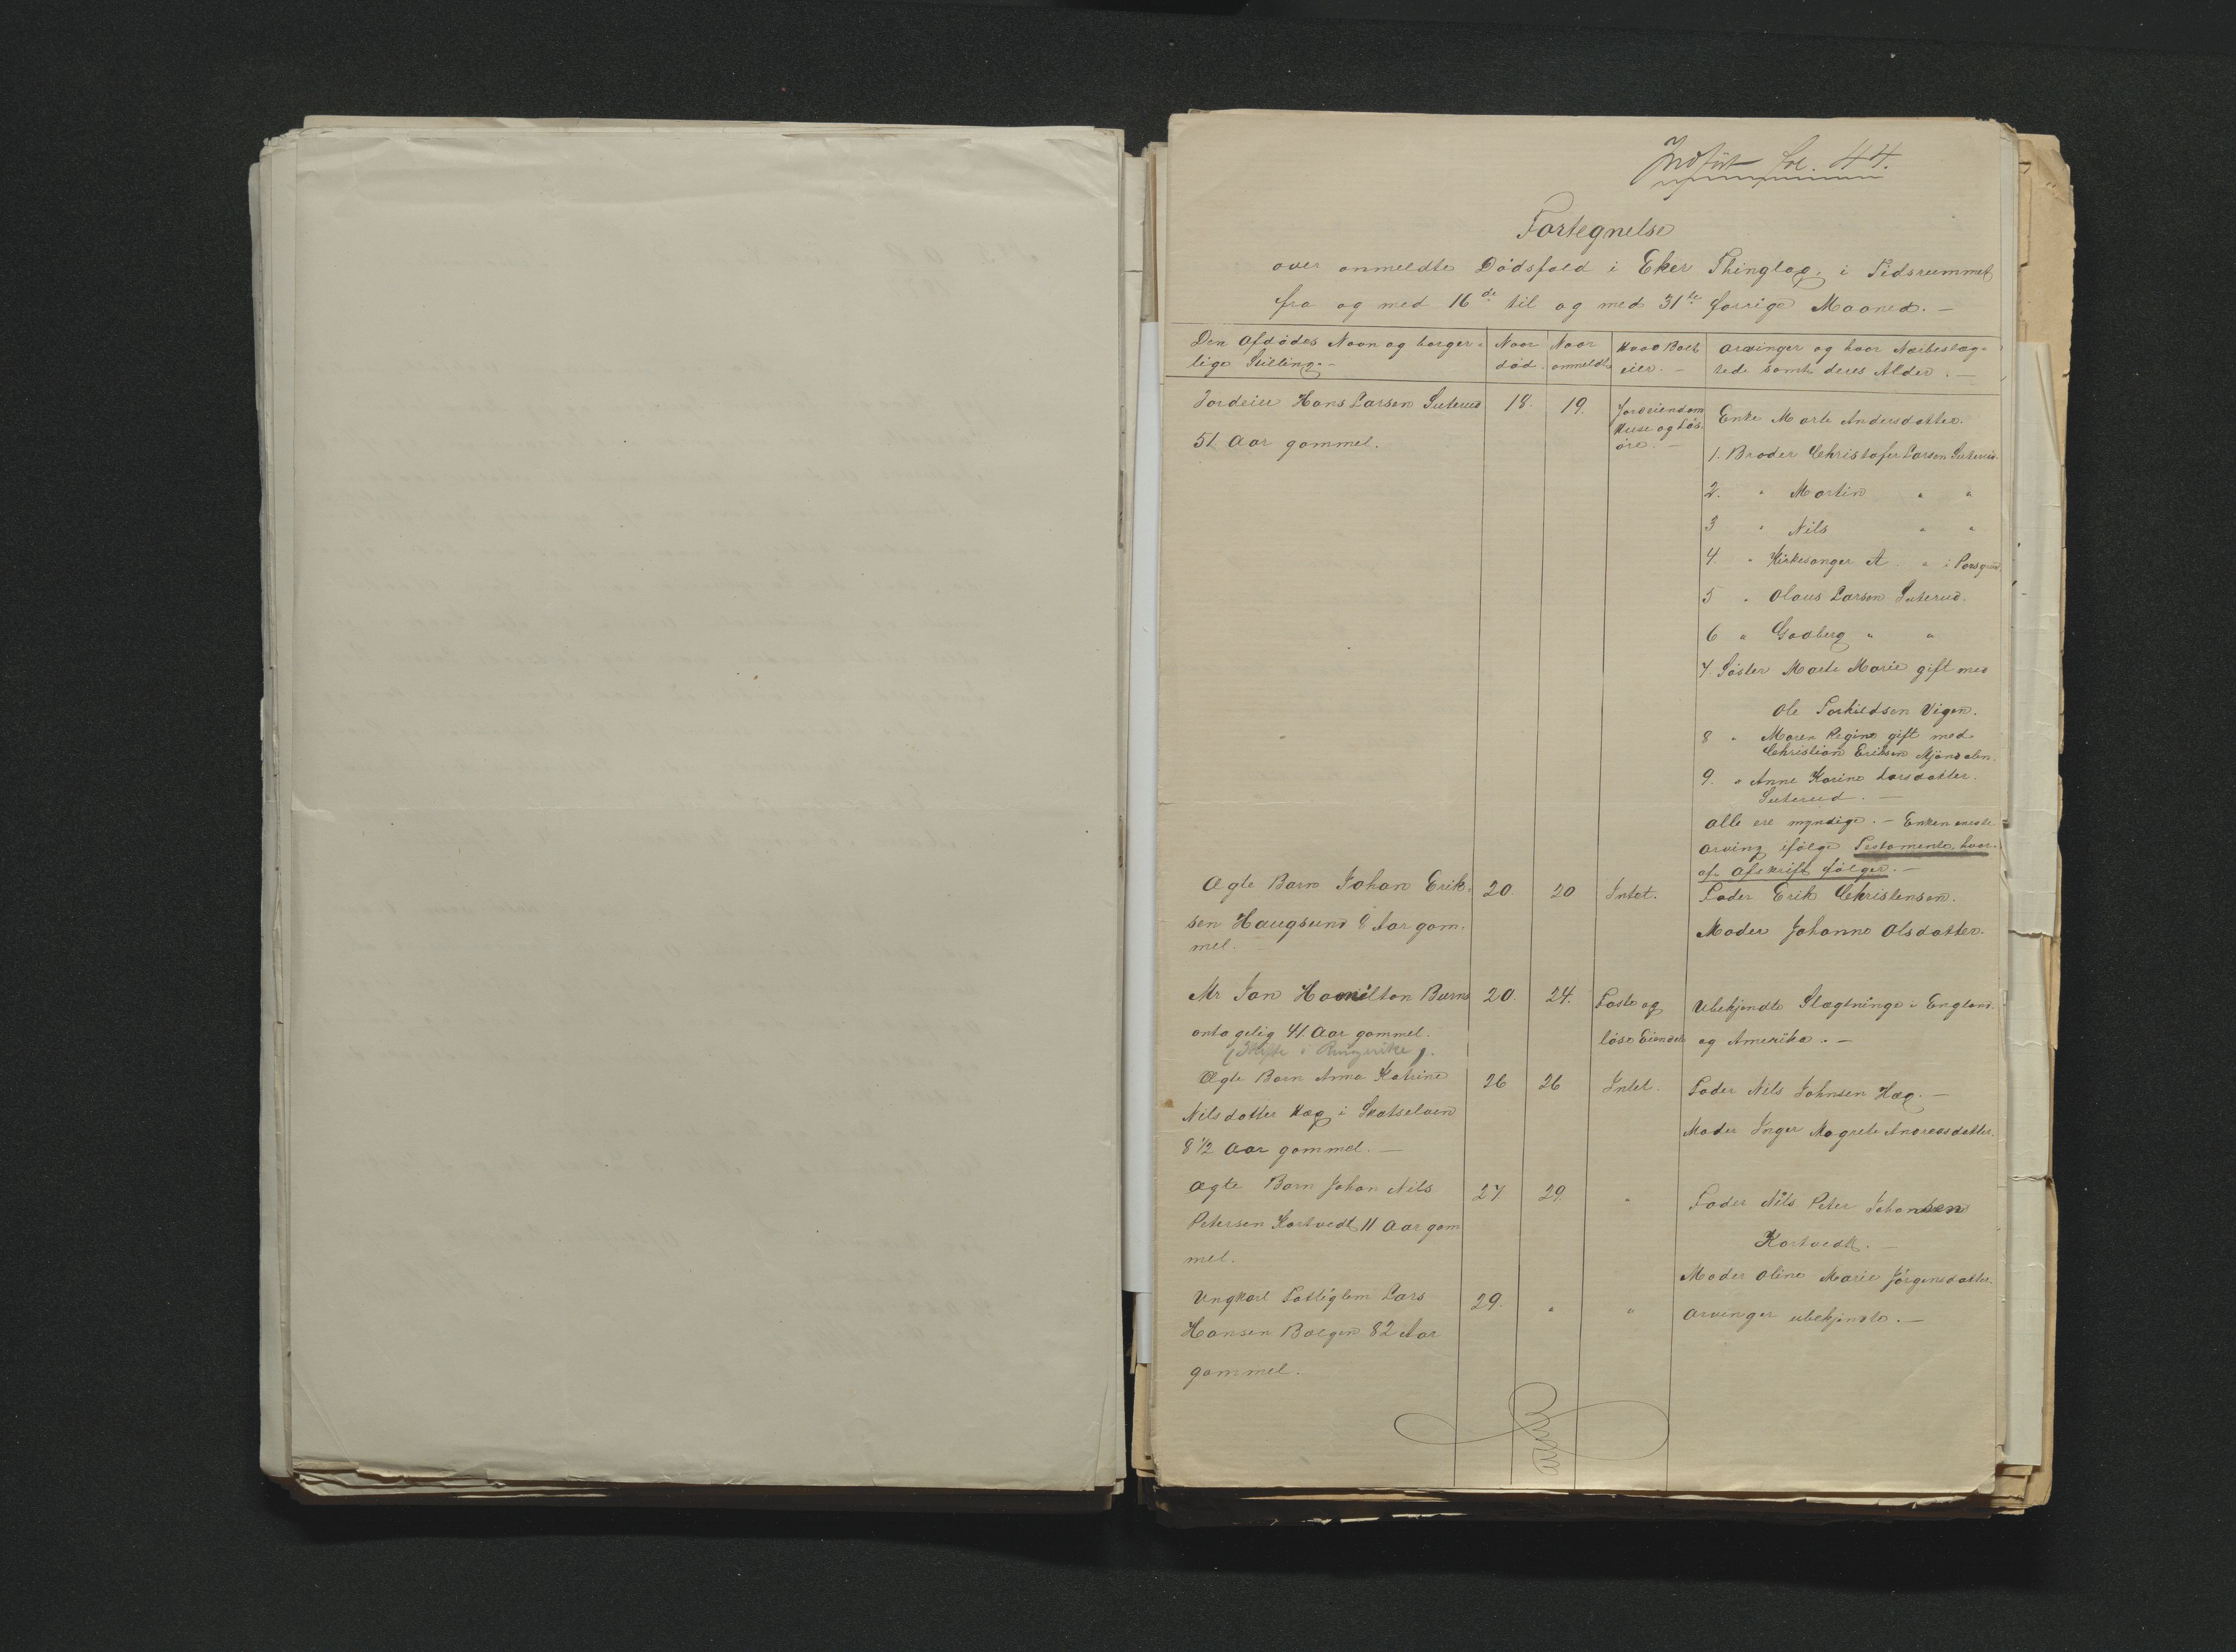 Indført fol. 44.
Fortegnelse
over anmeldte Dödsfald i Eker Thinglag, i Tidsrummet
fra og med 16de til og med 31te forrige Maaned. —
Den Afdödes Navn og borger-
lige Stilling. —
Naar
död.
Naar
anmeldt
Hvad Boet
eier. —
Arvinger og hvor Nærbeslæg-
tede samt deres Alder. —
Jordeier Hans Larsen Suterud
51 Aar gammel.
18.
19.
Jordeiendom
Huse og Lös-
öre. —
Enke Marte Andersdatter.
1. Broder Christofer Larsen Suterud.
2. " Martin " "
3 " Nils " "
4. " Kirkesanger A. " i Porsgrund
5 " Olaus Larsen Suterud.
6 " Gadberg " "
7. Söster Marte Marie gift med
Ole Torkildsen Vigen.
8 " Maren Regine gift med
Christian Eriksen Mjöndalen.
9. " Anne Karine Larsdatter
Suterud. —
Alle ere myndige. — Enken eneste
Arving ifölge Testamente, hvor-
af Afskrift fölger. —
Ægte Barn Johan Erik-
sen Haugsund 8 Aar gam-
mel.
20.
20
Intet.
Fader Erik Christensen.
Moder Johanne Olsdatter.
Mr Ian Hamilton Burns
antagelig 41 Aar gammel.
(Skifte i Ringerike).
20.
24.
Faste og
löse Eiendele
Ubekjendte Slægtninge i England
og Amerika. —
Ægte Barn Anna Katrine
Nilsdatter Hæg i Skotselven
8 1/2 Aar gammel. —
26
26
Intet.
Fader Nils Johnsen Hæg. —
Moder Inger Magrete Andreasdatter.
Ægte Barn Johan Nils
Petersen Kortvedt 11 Aar gam
mel.
27
29
"
Fader Nils Peter Johansen
Kortvedt. —
Moder Oline Marie Jörgensdatter.
Ungkarl Fattiglem Lars
Hansen Bolgen 82 Aar
gammel.
29.
"
"
Arvinger ubekjendte. —